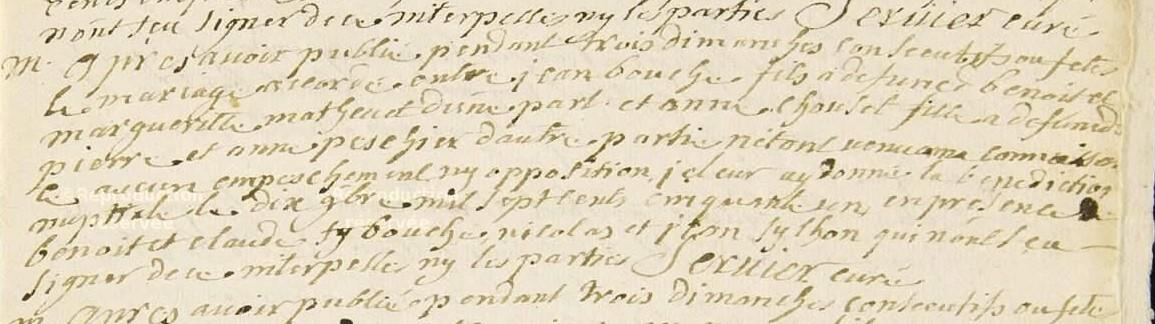 nont sçu signer de ce interpellés ny les parties Servier curé
m. apres avoir publié pendant trois dimanches consecutifs ou fetes
le mariage accordé entre jean bouche fils a defunct benoit et
margueritte matheud d'une part et anne chousel fille a defunct
pierre et anne peschier dautre partie n'etant venu a ma connoissan
ce aucun empeschement ny opposition je leur ay donné la benediction
nuptiale le dix 9bre mil sept cents cinquante un, en presence de
benoit et claude bouche, nicolas et jean sylhon qui n'ont sçu
signer de ce interpellés ny les parties Servier curé
m. apres avoir publié pendant trois dimanches consecutifs ou fete